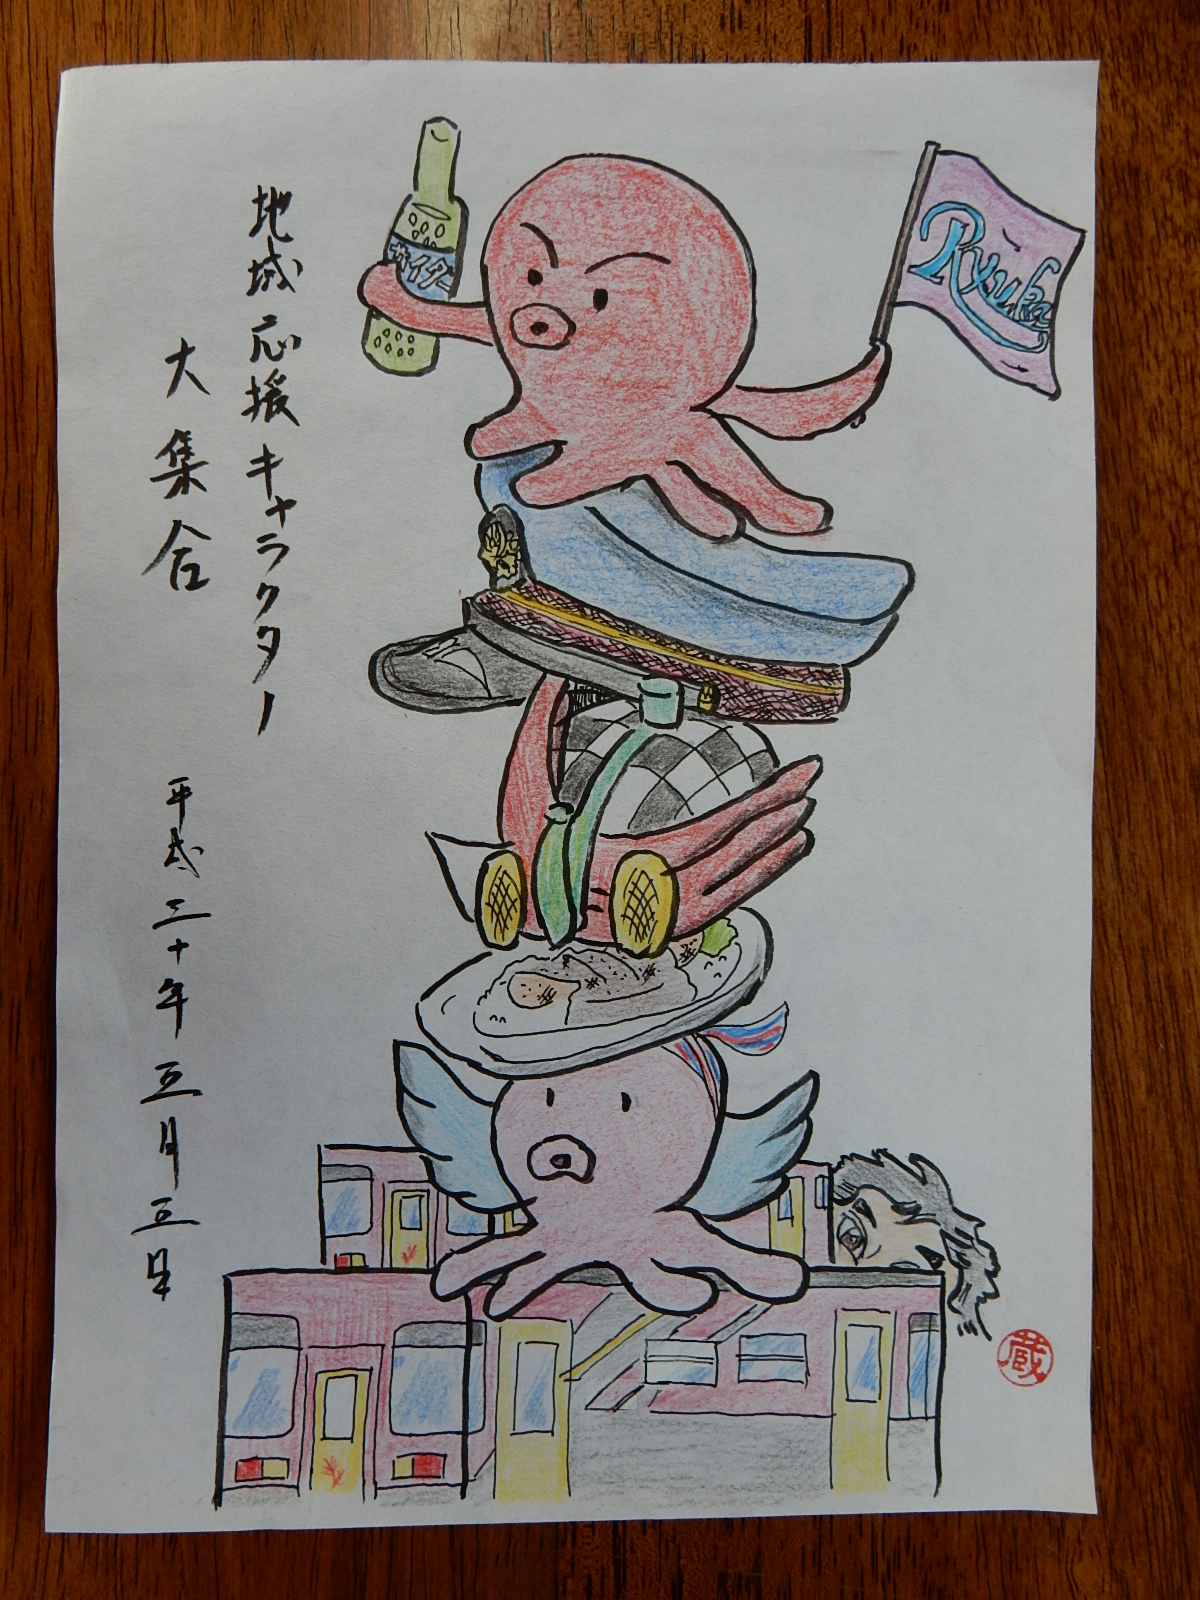 地域応援キャラクター
大集合
平成三十年五月五日
サイダー
Ryuka
蔵